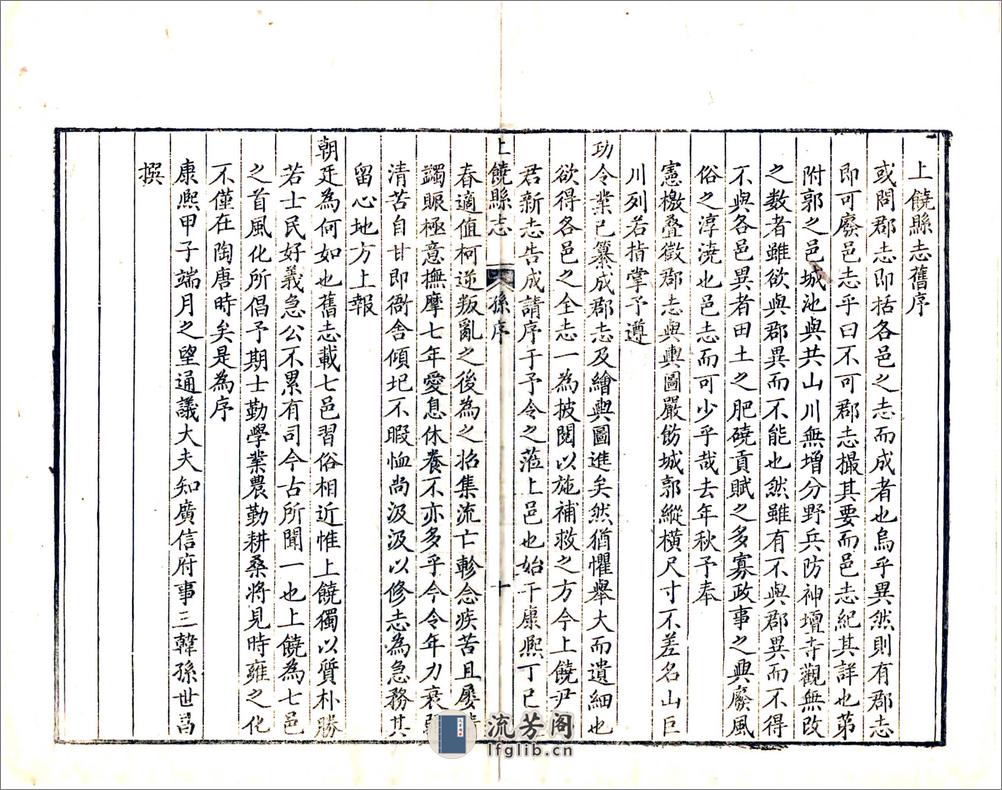 上饒縣志舊序
或問郡志即括各邑之志而成者也烏乎異然則有郡志
即可廢邑志乎曰不可郡志撮其要而邑志紀其詳也第
附郭之邑城池與共山川無增分野兵防神壇寺觀無改
之數者雖欲與郡異而不能也然雖有不與郡異而不得
不與各邑異者田土之肥磽貢賦之多寡政事之興廢風
俗之淳澆也邑志而可少乎哉去年秋予奉
憲檄叠徵郡志與輿圖嚴飭城郭縱橫尺寸不差名山巨
川列若指掌予遵
功令業已纂成郡志及繪輿圖進矣然猶懼舉大而遺細也
欲得各邑之全志一為披閱以施補救之方今上饒尹
君新志告成請序于予令之蒞上邑也始于康熙丁巳
上饒縣志 孫序 十
春適值柯逆叛亂之後為之招集流亡軫念疾苦且屢請
蠲賑極意撫摩七年愛息休養不亦多乎今令年力衰
清苦自甘即衙舍傾圮不暇恤尚汲汲以修志為急務其
留心地方上報
朝廷為何如也舊志載七邑習俗相近惟上饒獨以質朴勝
若士民好義急公不累有司今古所聞一也上饒為七邑
之首風化所倡予期士勤學業農勤耕桑將見時雍之化
不僅在陶唐時矣是為序
康熙甲子端月之望通議大夫知廣信府事三韓孫世昌
撰
流芳阁
lfglib.cn